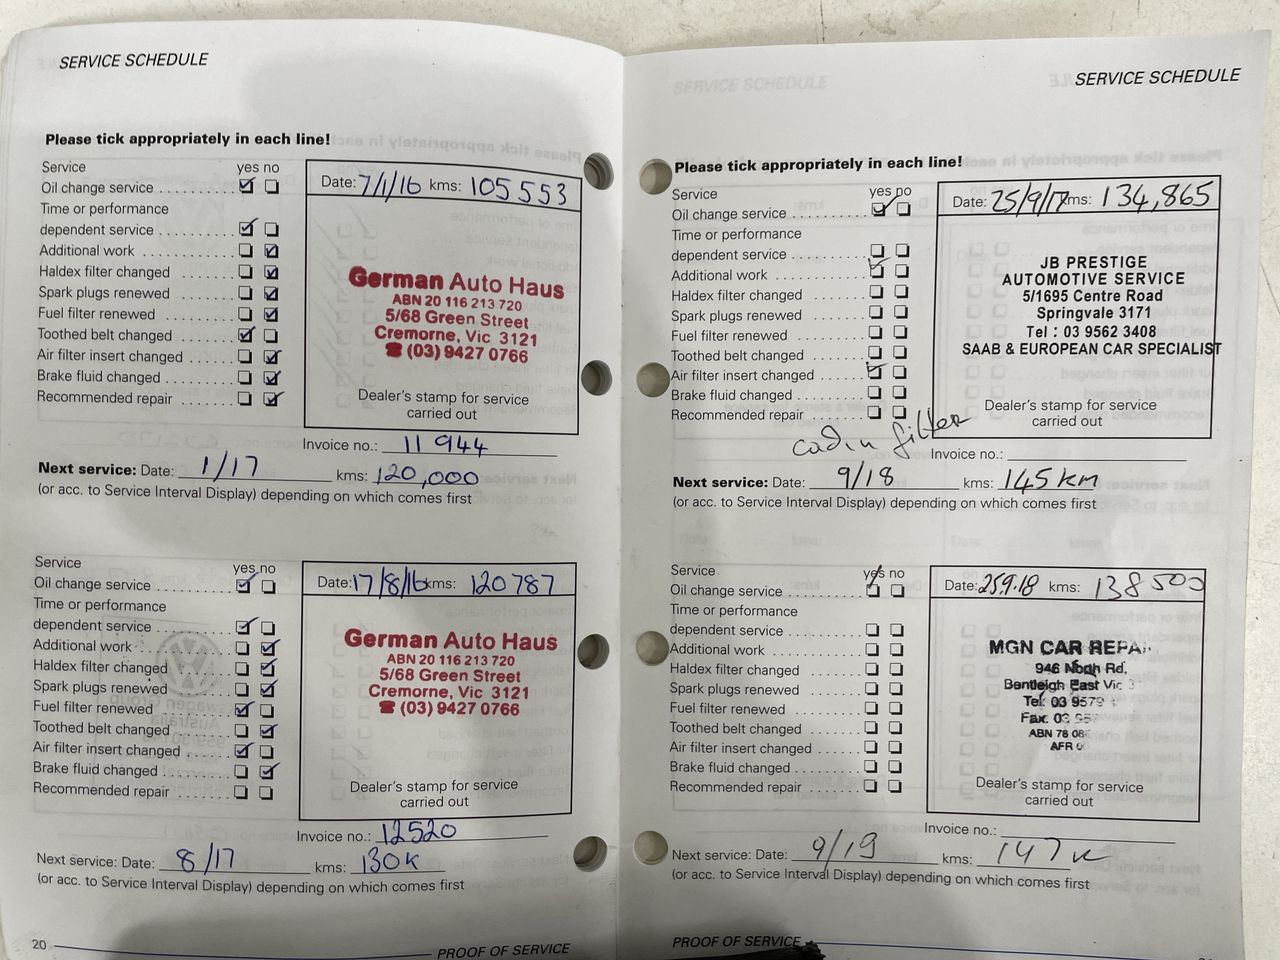 SERVICE SCHEDULE
Please tick appropriately in each line!
Service yes no
Oil change service
Time or performance
dependent service
Additional work
Haldex filter changed
Spark plugs renewed
Fuel filter renewed
Toothed belt changed
Air filter insert changed
Brake fluid changed
Recommended repair
Date: 7/1/16 kms: 105553
German Auto Haus
ABN 20 116 213 720
5/68 Green Street
Cremorne, Vic 3121
☎ (03) 9427 0766
Dealer's stamp for service
carried out
Invoice no.: 11944
Next service: Date: 1/17 kms: 120,000
(or acc. to Service Interval Display) depending on which comes first
Service yes no
Oil change service
Time or performance
dependent service
Additional work
Haldex filter changed
Spark plugs renewed
Fuel filter renewed
Toothed belt changed
Air filter insert changed
Brake fluid changed
Recommended repair
Date: 17/8/16 kms: 120787
German Auto Haus
ABN 20 116 213 720
5/68 Green Street
Cremorne, Vic 3121
☎ (03) 9427 0766
Dealer's stamp for service
carried out
Invoice no.: 12520
Next service: Date: 8/17 kms: 130K
(or acc. to Service Interval Display) depending on which comes first
20
PROOF OF SERVICE
SERVICE SCHEDULE
Please tick appropriately in each line!
Service yes no
Oil change service
Time or performance
dependent service
Additional work
Haldex filter changed
Spark plugs renewed
Fuel filter renewed
Toothed belt changed
Air filter insert changed
Brake fluid changed
Recommended repair
Date: 25/9/17 kms: 134,865
JB PRESTIGE
AUTOMOTIVE SERVICE
5/1695 Centre Road
Springvale 3171
Tel : 03 9562 3408
SAAB & EUROPEAN CAR SPECIALIST
Dealer's stamp for service
carried out
filter
Invoice no.:
Next service: Date: 9/18 kms: 145 km
(or acc. to Service Interval Display) depending on which comes first
Service yes no
Oil change service
Time or performance
dependent service
Additional work
Haldex filter changed
Spark plugs renewed
Fuel filter renewed
Toothed belt changed
Air filter insert changed
Brake fluid changed
Recommended repair
Date: 25.9.18 kms: 138500
MGN CAR
946 North Rd.
Bentleigh East Vic 3
Tel: 03 9579
Fax. 03
ABN 78
Dealer's stamp for service
carried out
Invoice no.:
Next service: Date: 9/19 kms: 147 K
(or acc. to Service Interval Display) depending on which comes first
PROOF OF SERVICE